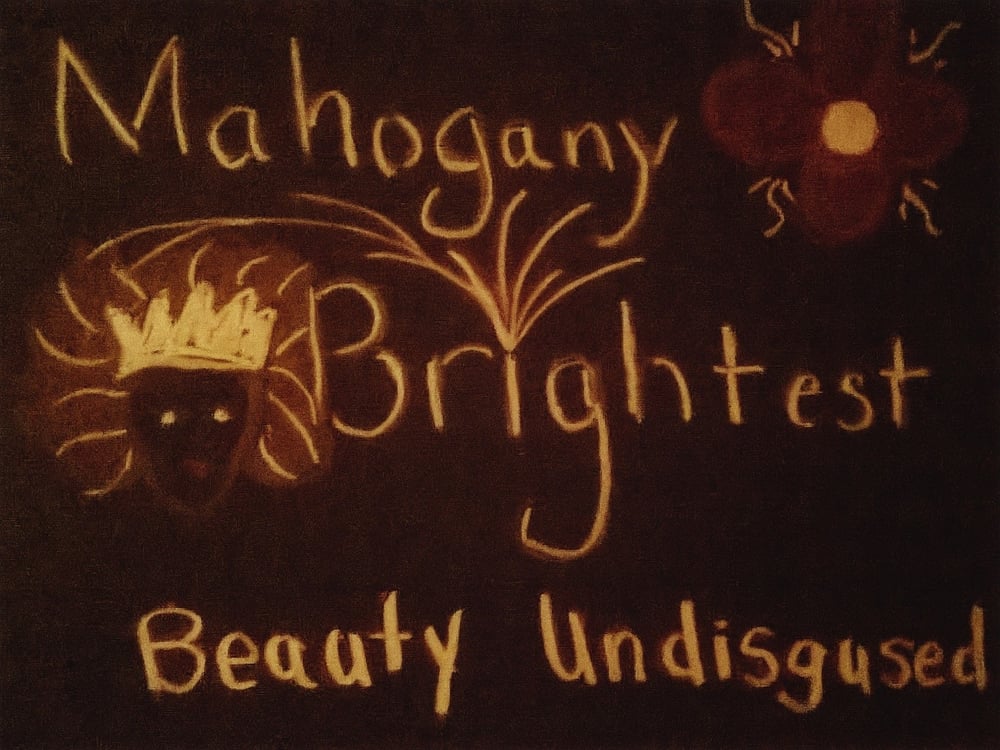 Mahogany
Brightest
Beauty Undisgused